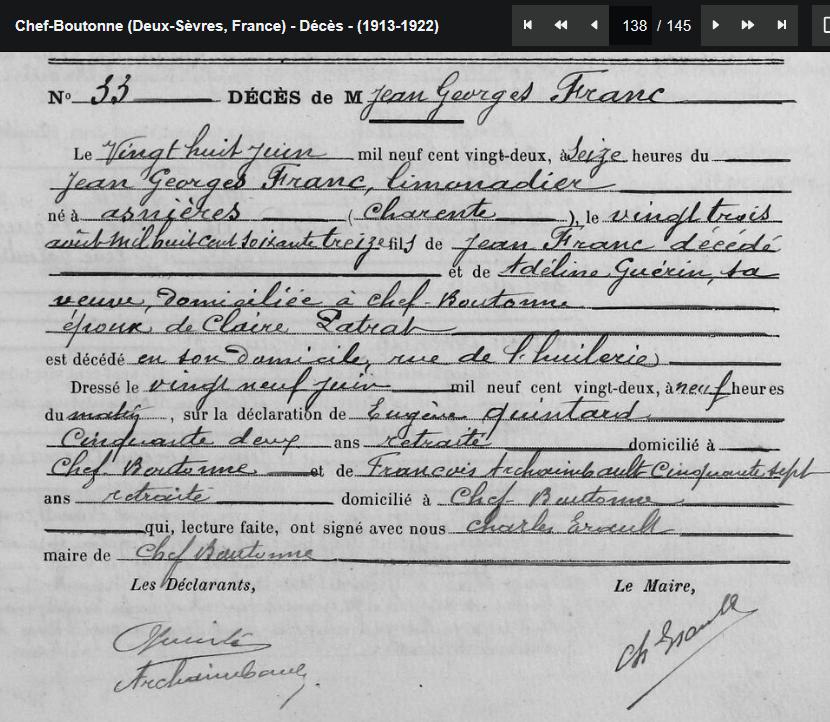 Chef-Boutonne (Deux-Sèvres, France) - Décès - (1913-1922)
138 / 145
No 33 DÉCÈS de M Jean Georges Franc
Le Vingt huit juin mil neuf cent vingt-deux, à Seize heures du
Jean Georges Franc, limonadier
né à asnières (Charente), le vingt trois
août mil huit cent soixante treize fils de Jean Franc décédé
et de Adéline Guérin, sa
veuve, domiciliée à chef-Boutonne
époux de Claire
est décédé en son domicile, rue de l'huilerie
Dressé le vingt neuf juin mil neuf cent vingt-deux, à neuf heures
du matin, sur la déclaration de Eugène Quintard
Cinquante deux ans retraité domicilié à
Chef-Boutonne et de François Archaimbault Cinquante sept
ans retraité domicilié à Chef-Boutonne
qui, lecture faite, ont signé avec nous Charles Erault
maire de Chef Boutonne
Les Déclarants, Le Maire,
Ch Erault
Archaimbault